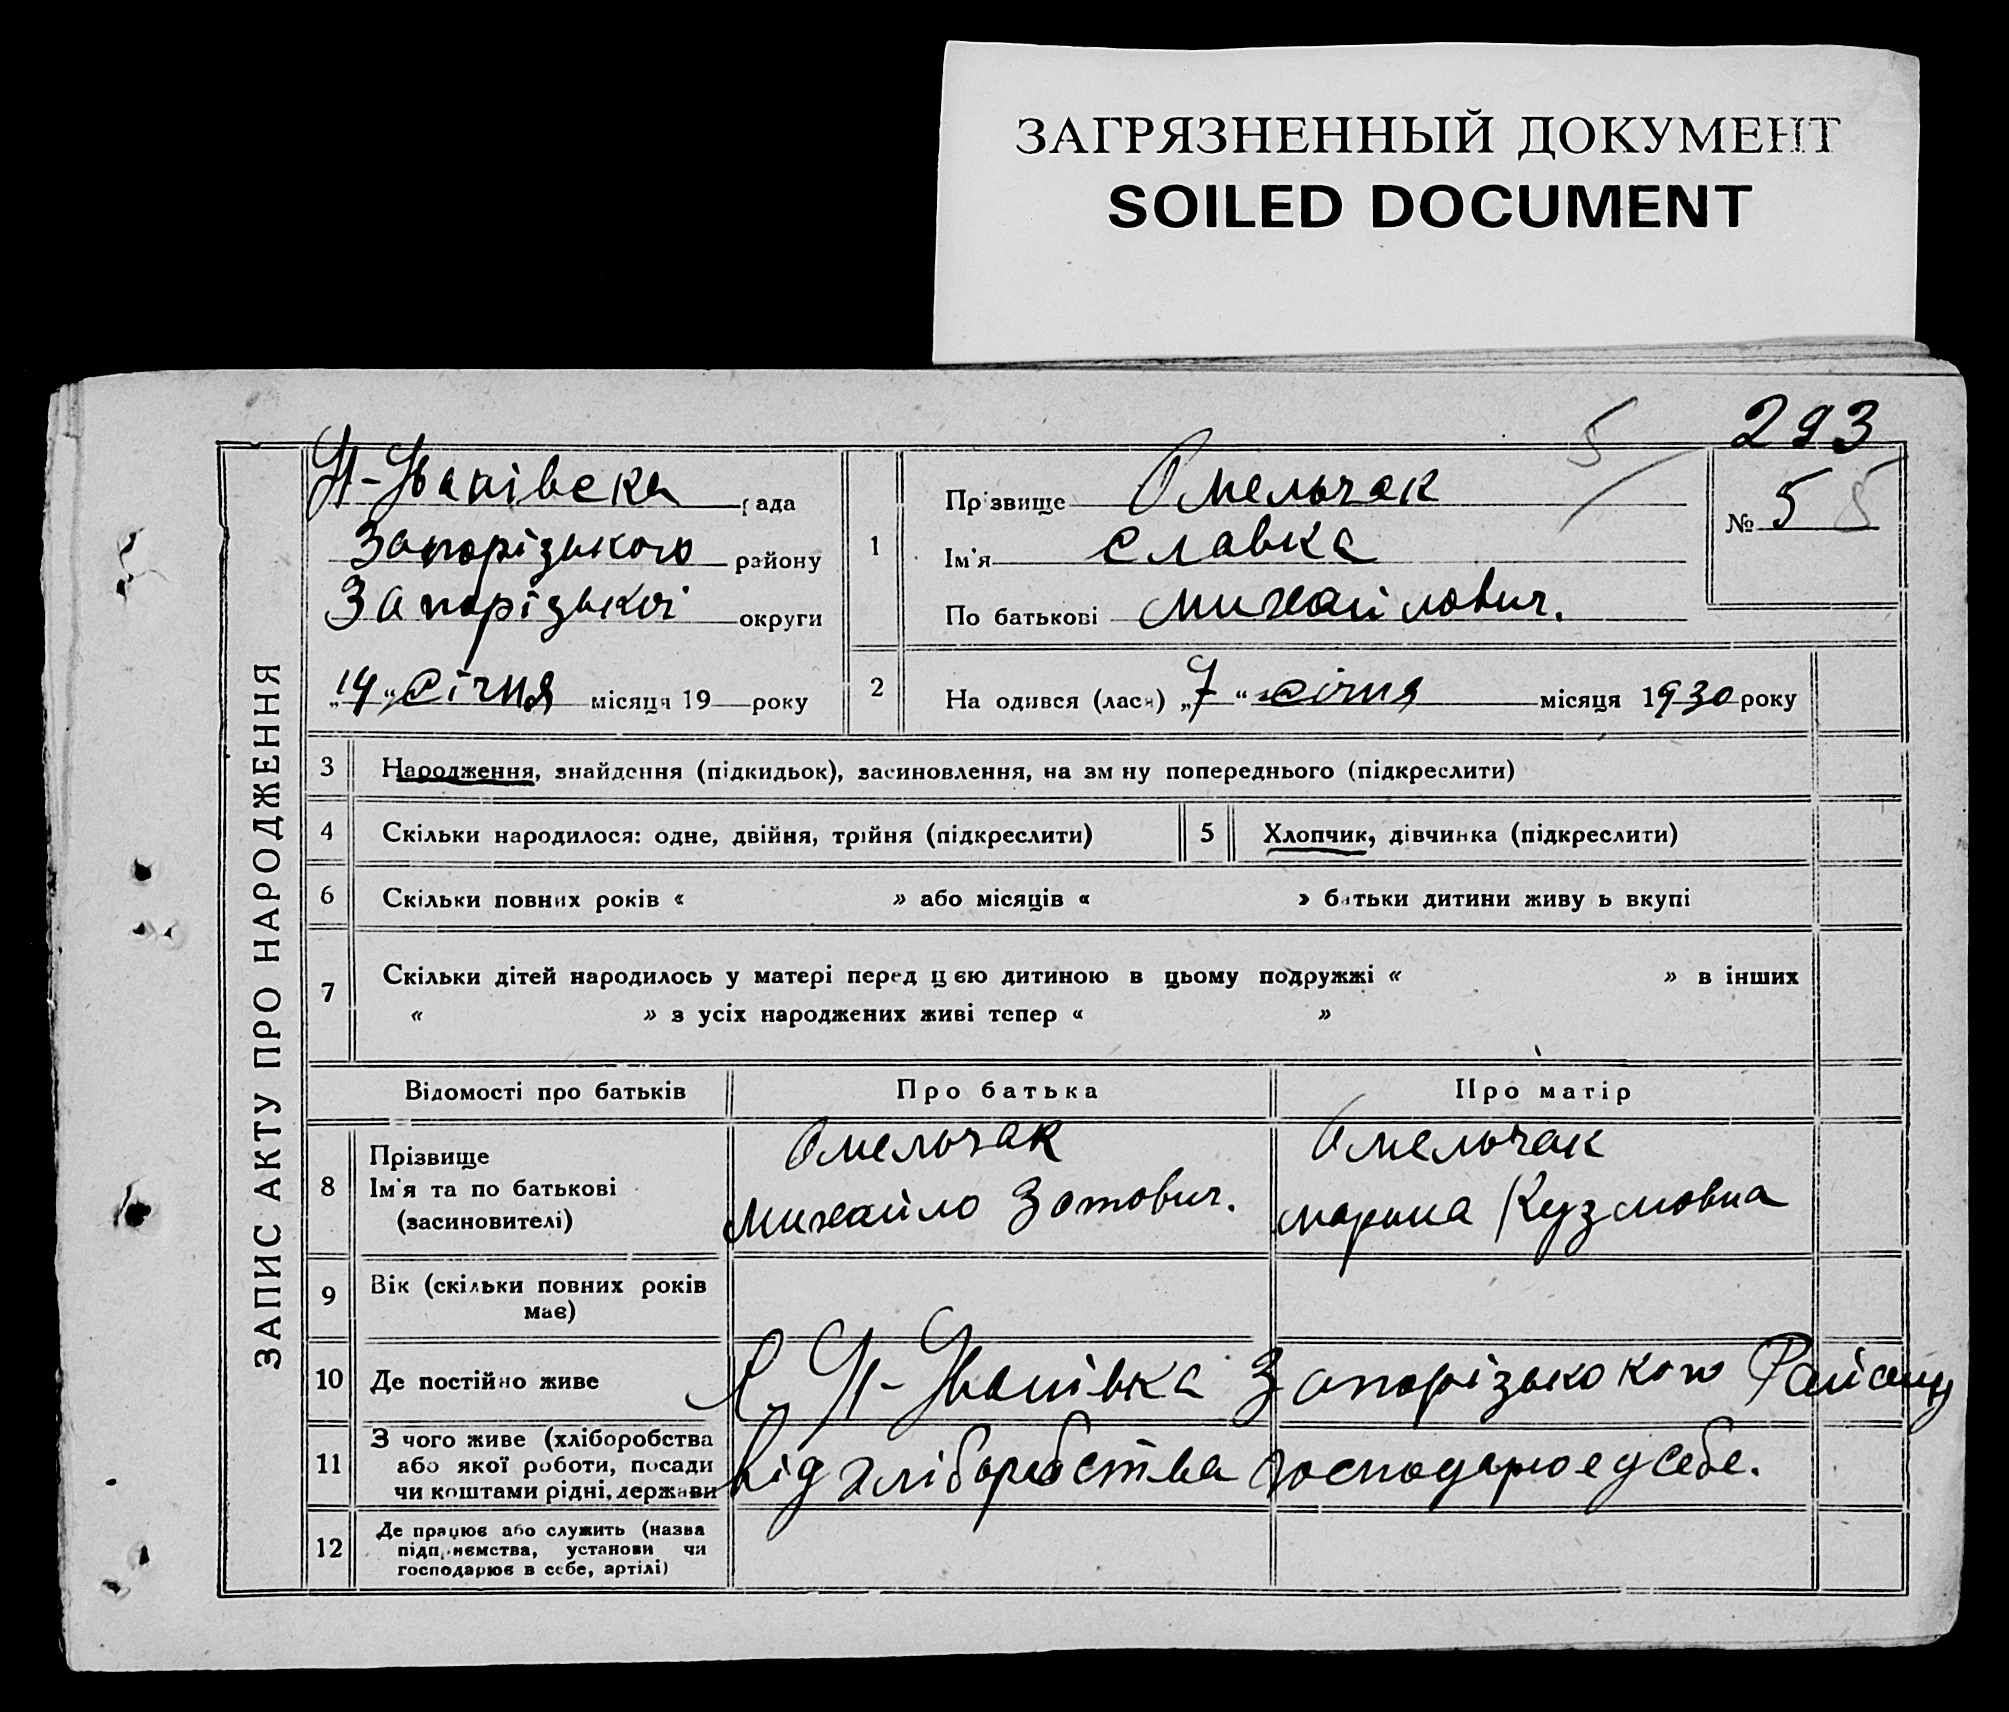 ЗАГРЯЗНЕННЫЙ ДОКУМЕНТ
SOILED DOCUMENT
293
5
ЗАПИС АКТУ ПРО НАРОДЖЕННЯ
Н-Іванівска рада
Запорізького району
Запорізької округи
„14“ січня місяця 19 року
1
Прізвище Омельчак
Ім'я Славка
По батькові Михайлович.
№ 5 5
2
На одився (лася) „7“ січня місяця 1930 року
3 Народження, знайдення (підкидьок), засиновлення, на зм ну попереднього (підкреслити)
4 Скільки народилося: одне, двійня, трійня (підкреслити)
5 Хлопчик, дівчинка (підкреслити)
6 Скільки повних років « » або місяців « » батьки дитини живу ь вкупі
7 Скільки дітей народилось у матері перед цією дитиною в цьому подружжі « » в інших
« » з усіх народжених живі тепер « »
Відомості про батьків Про батька Про матір
8 Прізвище
Ім'я та по батькові
(засиновителі)
Омельчак
Михайло Зотович.
Омельчак
Марина Кузмовна
9 Вік (скільки повних років
має)
10 Де постійно живе
с. Н-Іванівка Запорізького Району
11 З чого живе (хліборобства
або якої роботи, посади
чи коштами рідні, держави
від хліборобства господарює у себе.
12 Де працює або служить (назва
підприємства, установи чи
господарює в себе, артілі)